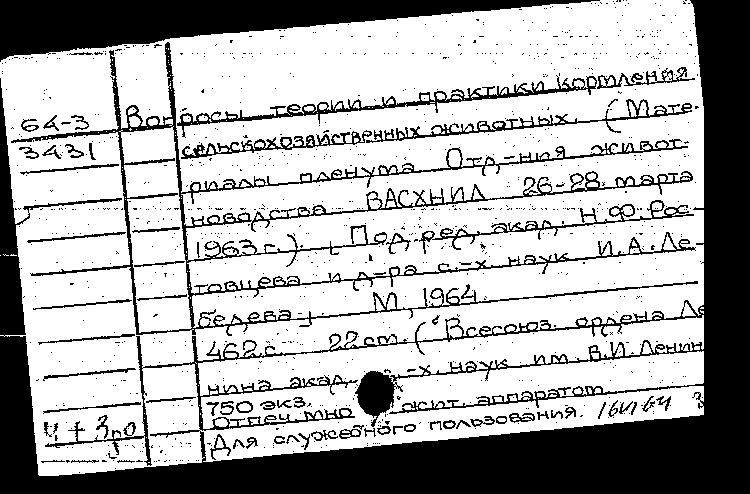 64-3 Вопросы теории и практики кормления
3431 сельскохозяйственных животных. (Мате-
риалы пленума Отд,-ния живот-
новодства ВАСХНИЛ 26-28 марта
1963 г.). [Под ред. акад. Н.Ф. Рос-
товцева и д-ра с.-х. наук И.А. Ле-
бедева]. М, 1964.
462 с. 22 см. (Всесоюз. ордена Ле
нина акад. -х. наук им. В.И. Ленин
750 экз.
Отпеч. мно жит. аппаратом
Для служебного пользования.